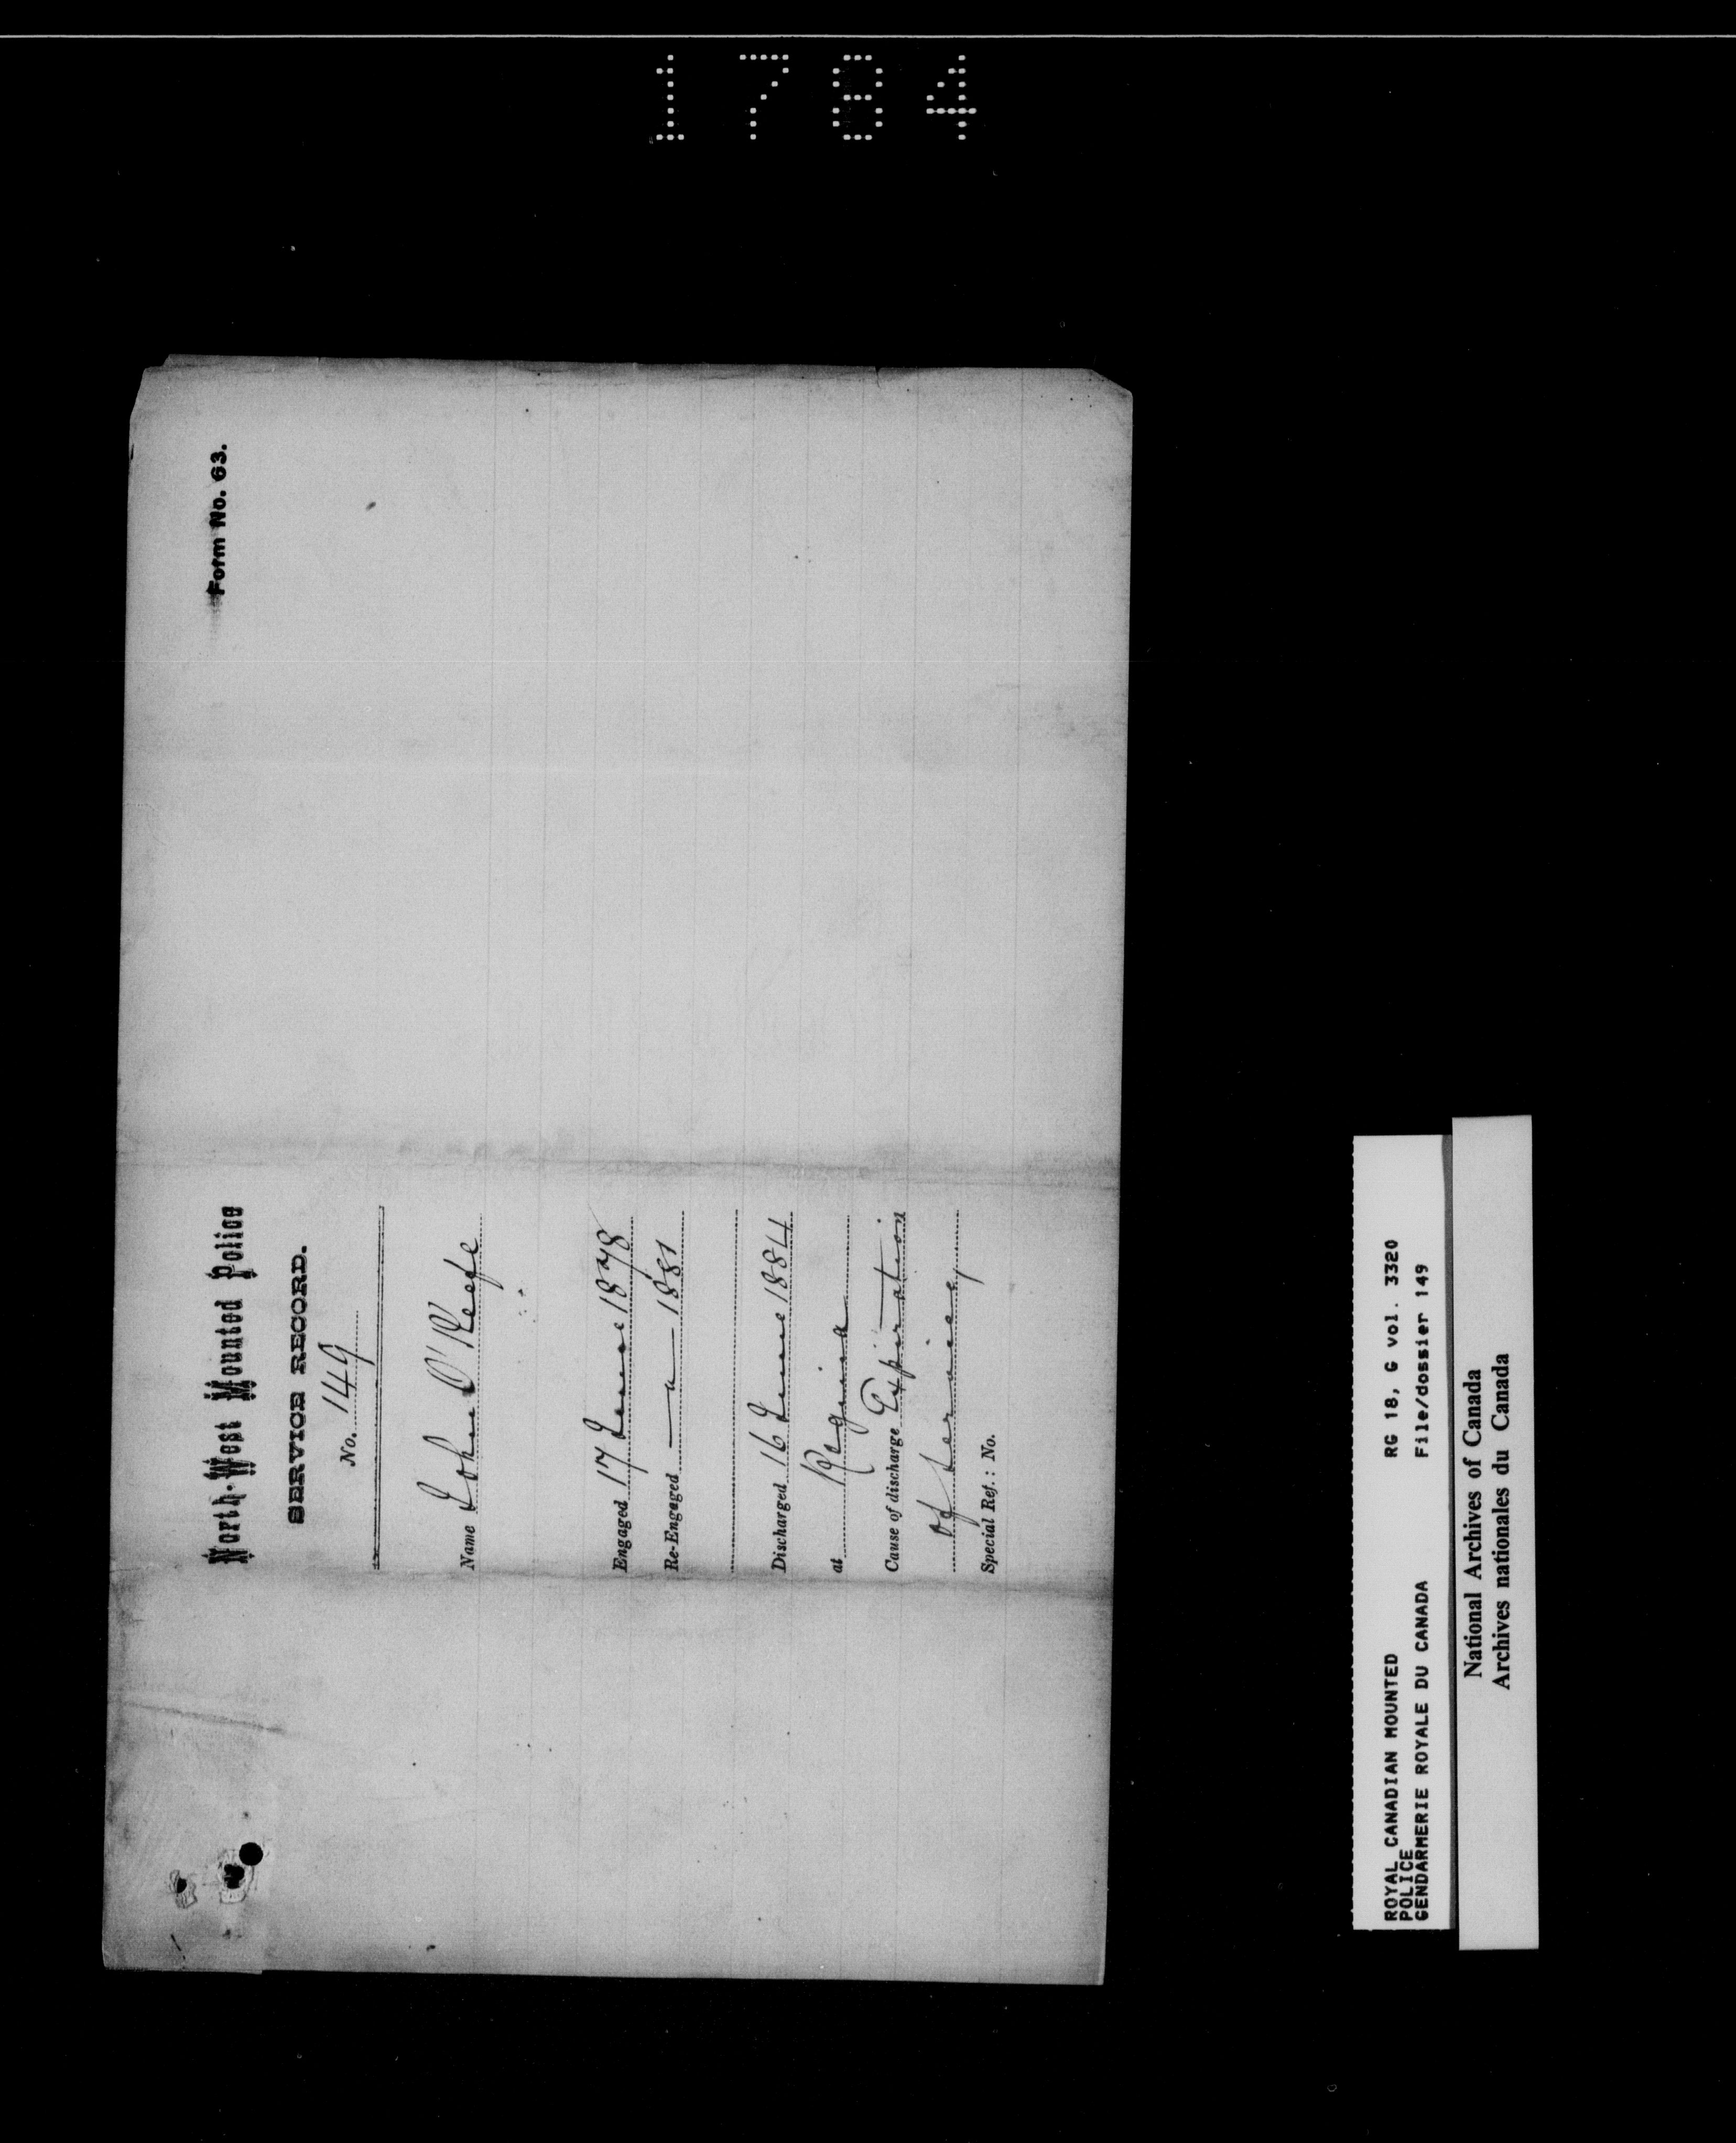 1784
Form No. 63.
North-West Mounted Police
SERVICE RECORD.
No. 149
Name John O'Keefe
Engaged 17 June 1878
Re-Engaged — " — 1881
Discharged 16 June 1884
at Regina
Cause of discharge Expiration
of service
Special Ref.: No.
ROYAL CANADIAN MOUNTED RG 18, G vol. 3320
POLICE
GENDARMERIE ROYALE DU CANADA File/dossier 149
National Archives of Canada
Archives nationales du Canada